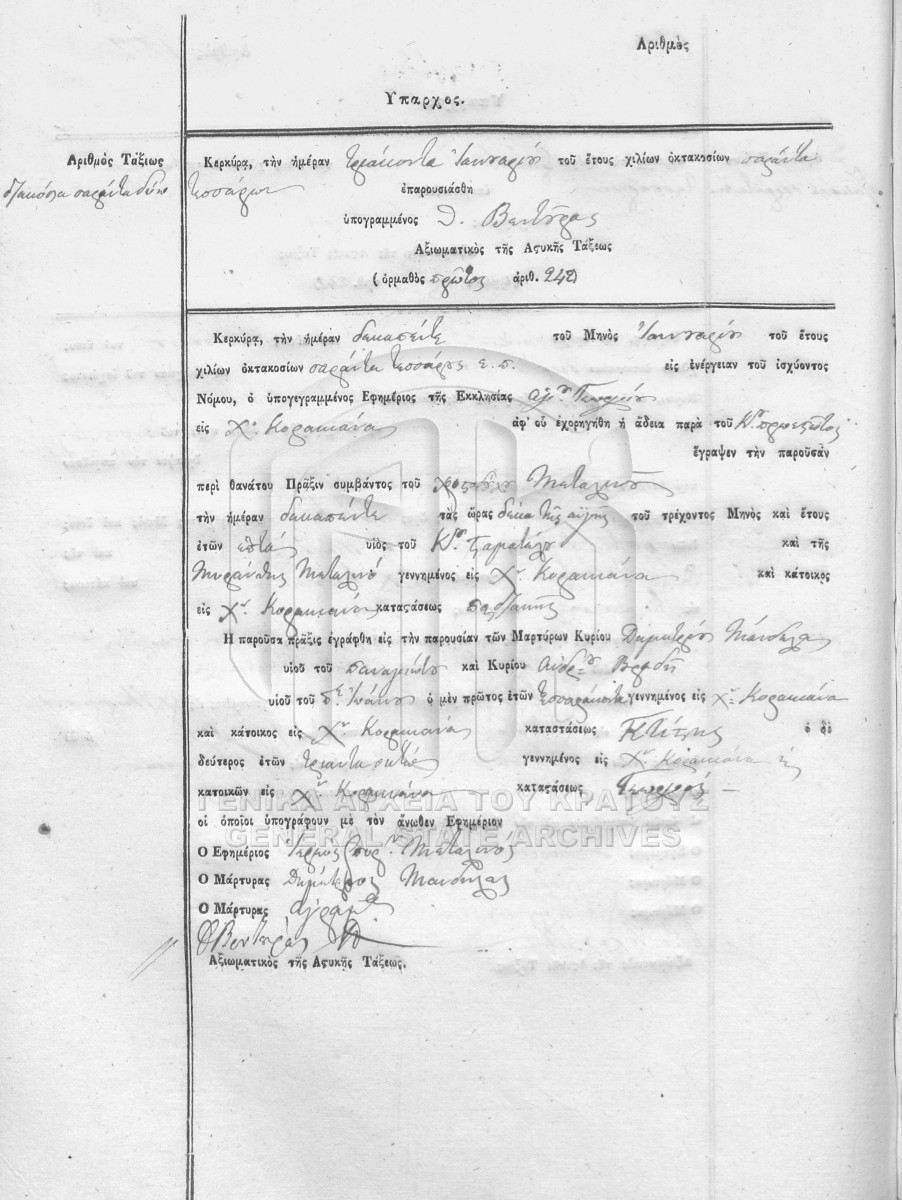 Ἀριθμὸς
Υπαρχος.
Ἀριθμὸς Τάξεως
διακόσια σαράντα δύο
Κερκύρᾳ, τὴν ἡμέραν τριάκοντα Ἰανουαρίου τοῦ ἔτους χιλίων ὀκτακοσίων σαράντα
τεσσάρων ἐπαρουσιάσθη
ὑπογραμμένος Βεντούρας
Ἀξιωματικὸς τῆς Αςυκῆς Τάξεως
(ὁρμαθὸς πρῶτος ἀριθ. 242)
Κερκύρᾳ, τὴν ἡμέραν δεκαπέντε τοῦ Μηνὸς Ἰανουαρίου τοῦ ἔτους
χιλίων ὀκτακοσίων σαράντα τεσσάρους ε. π. εἰς ἐνέργειαν τοῦ ἰσχύοντος
Νόμου, ὁ ὑπογεγραμμένος Ἐφημέριος τῆς Ἐκκλησίας ἁγίου Γεωργίου
εἰς Χ. Κορακιάνα ἀφ' οὗ ἐχορηγήθη ἡ ἄδεια παρὰ τοῦ
ἔγραψεν τὴν παροῦσαν
περὶ θανάτου Πρᾶξιν συμβάντος τοῦ Μεταλινοῦ
τὴν ἡμέραν δεκαπέντε τὰς ὥρας δέκα τῆς αὐγῆς τοῦ τρέχοντος Μηνὸς καὶ ἔτους
ἐτῶν ἑπτά υἱὸς τοῦ Κου Σταματέλου καὶ τῆς
Μεταλινό γεννημένος εἰς Χν. Κορακιάνα καὶ κάτοικος
εἰς Χν. Κορακιάνα καταςάσεως
Η παροῦσα πρᾶξις ἐγράφθη εἰς τὴν παρουσίαν τῶν Μαρτύρων Κυρίου Δημητρίου Μάνδηλα
υἱοῦ τοῦ Παναγιώτου καὶ Κυρίου Ἀνδρ.
υἱοῦ τοῦ π. ὁ μὲν πρῶτος ἐτῶν τεσσαράκοντα γεννημένος εἰς Χν Κορακιάνα
καὶ κάτοικος εἰς Χν Κορακιάνα καταστάσεως Κτίστης ὁ δὲ
δεύτερος ἐτῶν τριάντα ὀκτώ γεννημένος εἰς Χν Κορακιάνα
κατοικῶν εἰς Χν Κορακιάνα καταςάσεως Γεωργός
ΓΕΝΙΚΑ ΑΡΧΕΙΑ ΤΟΥ ΚΡΑΤΟΥΣ
οἱ ὁποῖοι ὑπογράφουν μὲ τὸν ἄνωθεν Ἐφημέριον
GENERAL STATE ARCHIVES
Ο Ἐφημέριος Μεταλινός
Ο Μάρτυρας Δημήτριος Μάνδηλας
Ο Μάρτυρας ἀγράμ.
Βεντούρας
Ἀξιωματικὸς τῆς Αςυκῆς Τάξεως.